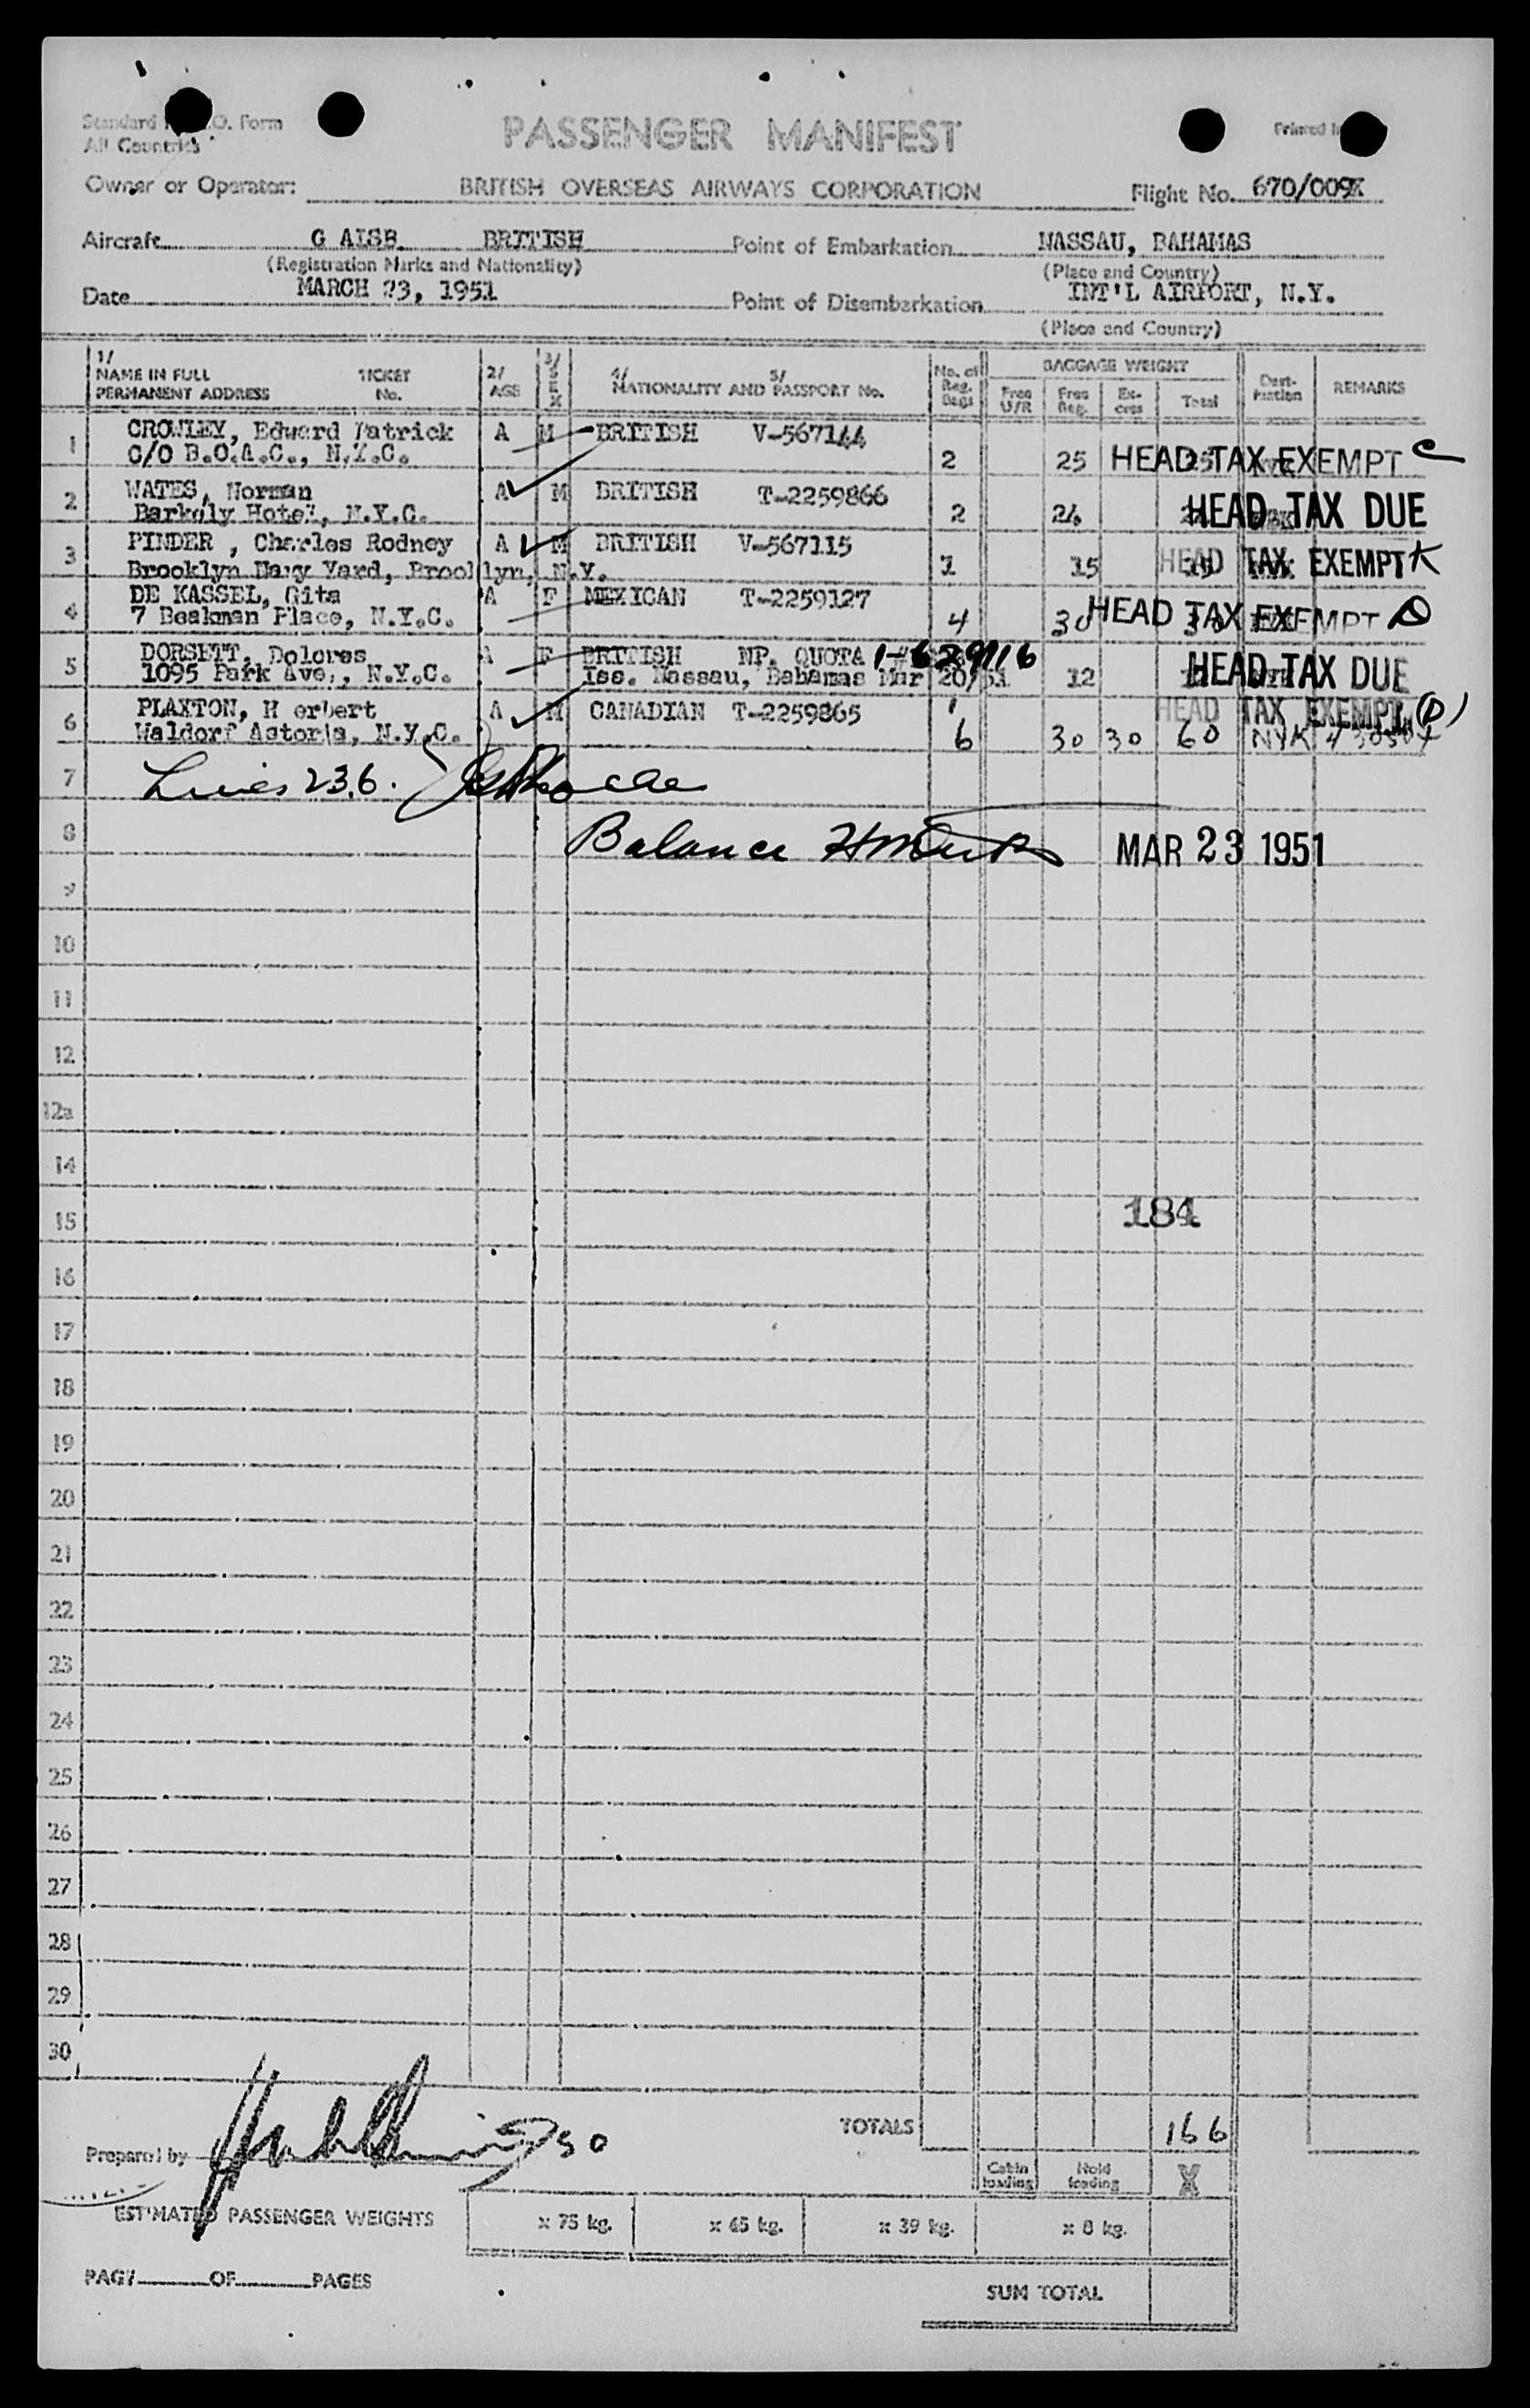 Standard I.C.A.O. Form
All Countries
PASSENGER MANIFEST
Printed in
Owner or Operator: BRITISH OVERSEAS AIRWAYS CORPORATION Flight No. 670/009X
Aircraft G AISB BRITISH Point of Embarkation NASSAU, BAHAMAS
(Registration Marks and Nationality) (Place and Country)
Date MARCH 23, 1951 Point of Disembarkation INT'L AIRPORT, N.Y.
(Place and Country)
1/ NAME IN FULL TICKET 2/ 3/ 4/ 5/ No. of BAGGAGE WEIGHT Dest- REMARKS
PERMANENT ADDRESS No. AGE SEX NATIONALITY AND PASSPORT No. Reg. Bags Free U/R Free Reg. Ex-cess Total ination
1 CROWLEY, Edward Patrick A M BRITISH V-567144
C/O B.O.A.C., N.Y.C. 2 25 25 HEAD TAX EXEMPT C
2 WATES, Norman A M BRITISH T-2259866
Barkely Hotel, N.Y.C. 2 24 HEAD TAX DUE
3 PINDER , Charles Rodney A M BRITISH V-567115
Brooklyn Navy Yard, Brooklyn, N.Y. 1 15 HEAD TAX EXEMPT K
4 DE KASSEL, Gita A F MEXICAN T-2259127
7 Beakman Place, N.Y.C. 4 30 30 HEAD TAX EXEMPT D
5 DORSETT, Dolores A F BRITISH NP. QUOTA I-629116
1095 Park Ave., N.Y.C. Iss. Nassau, Bahamas Mar 20/51 12 HEAD TAX DUE
6 PLAXTON, H erbert A M CANADIAN T-2259865 1 HEAD TAX EXEMPT (D)
Waldorf Astoria, N.Y.C. 6 30 30 60 NYK
7 Lines 236.
8 Balance MAR 23 1951
9
10
11
12
12a
14
15 184
16
17
18
19
20
21
22
23
24
25
26
27
28
29
30
TOTALS 166
Prepared by
Cabin loading Hold loading X
ESTIMATED PASSENGER WEIGHTS x 75 kg. x 65 kg. x 39 kg. x 8 kg.
PAGE OF PAGES
SUM TOTAL